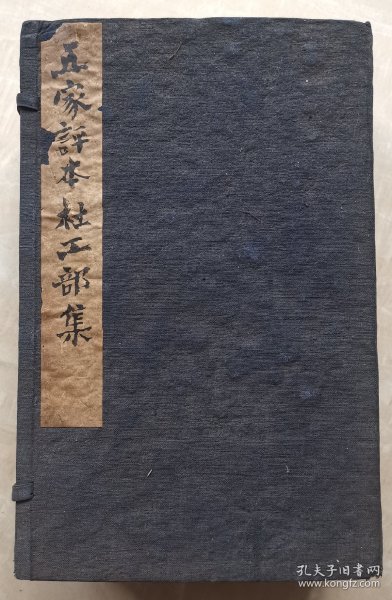 五家評本杜工部集
孔夫子旧书网
www.kongfz.com